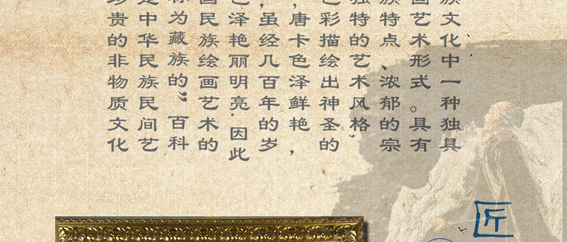 族文化中一种独具
画艺术形式。具有
族特点、浓郁的宗
独特的艺术风格,
色彩描绘出神圣的
,唐卡色泽鲜艳,
,虽经几百年的岁
色泽艳丽明亮。因此
国民族绘画艺术的
称为藏族的”百科
是中华民族民间艺
珍贵的非物质文化
匠